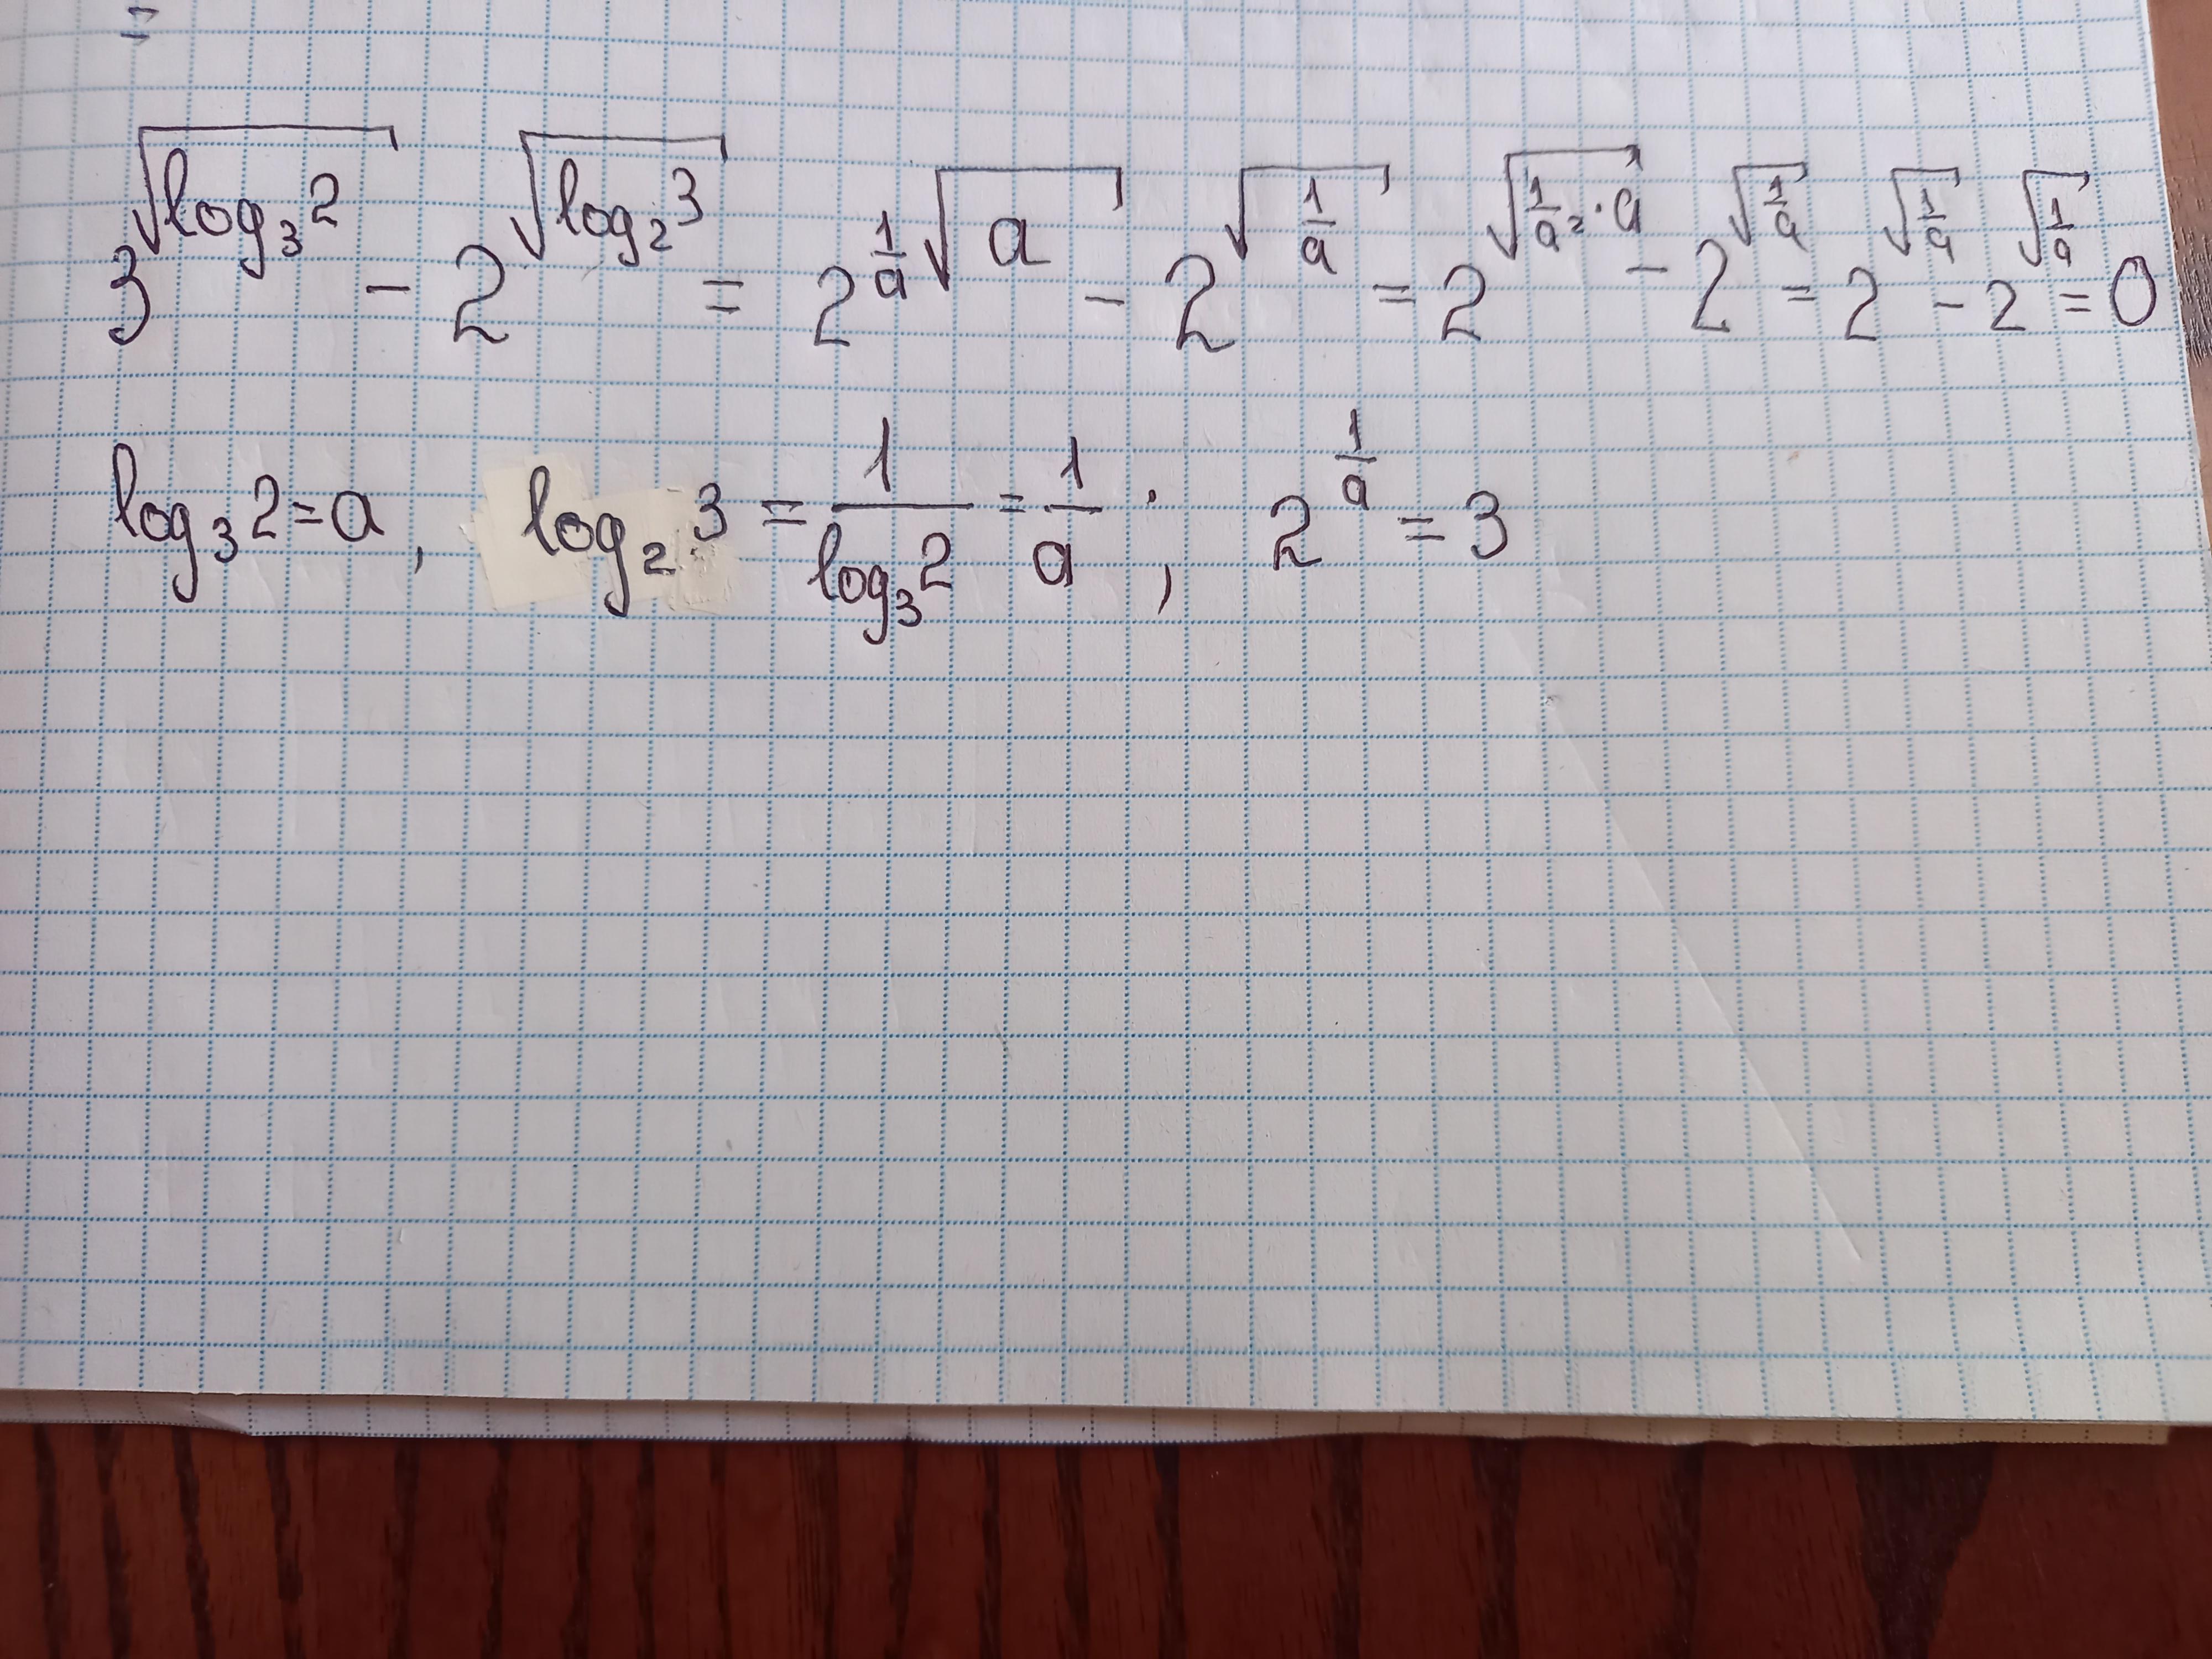 =
3^√(log₃2) - 2^√(log₂3) = 2^(1/a √a) - 2^√(1/a) = 2^√(1/a² · a) - 2^√(1/a) = 2^√(1/a) - 2^√(1/a) = 0
log₃2 = a, log₂3 = 1/log₃2 = 1/a , 2^(1/a) = 3